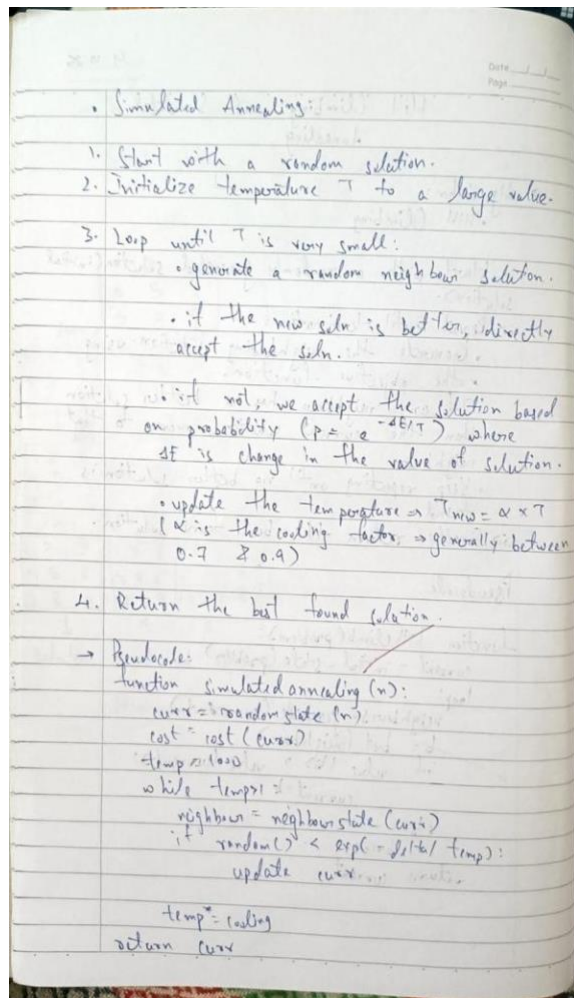 Date
Page
• Simulated Annealing:
1. Start with a random solution.
2. Initialize temperature T to a large value.
3. Loop until T is very small:
• generate a random neighbour solution.
• if the new soln is better, directly
accept the soln.
• if not, we accept the solution based
on probability (p = e^-ΔE/T) where
ΔE is change in the value of solution.
• update the temperature ⇒ Tnew = α × T
(α is the cooling factor, ⇒ generally between
0.7 & 0.9)
4. Return the best found solution.
→ Pseudocode:
function simulated annealing (n):
curr = random state (n)
cost = cost (curr)
temp = 1000
while temp>1 :
neighbour = neighbour state (curr)
if random() < exp(- delta/ temp):
update curr
temp *= cooling
return curr